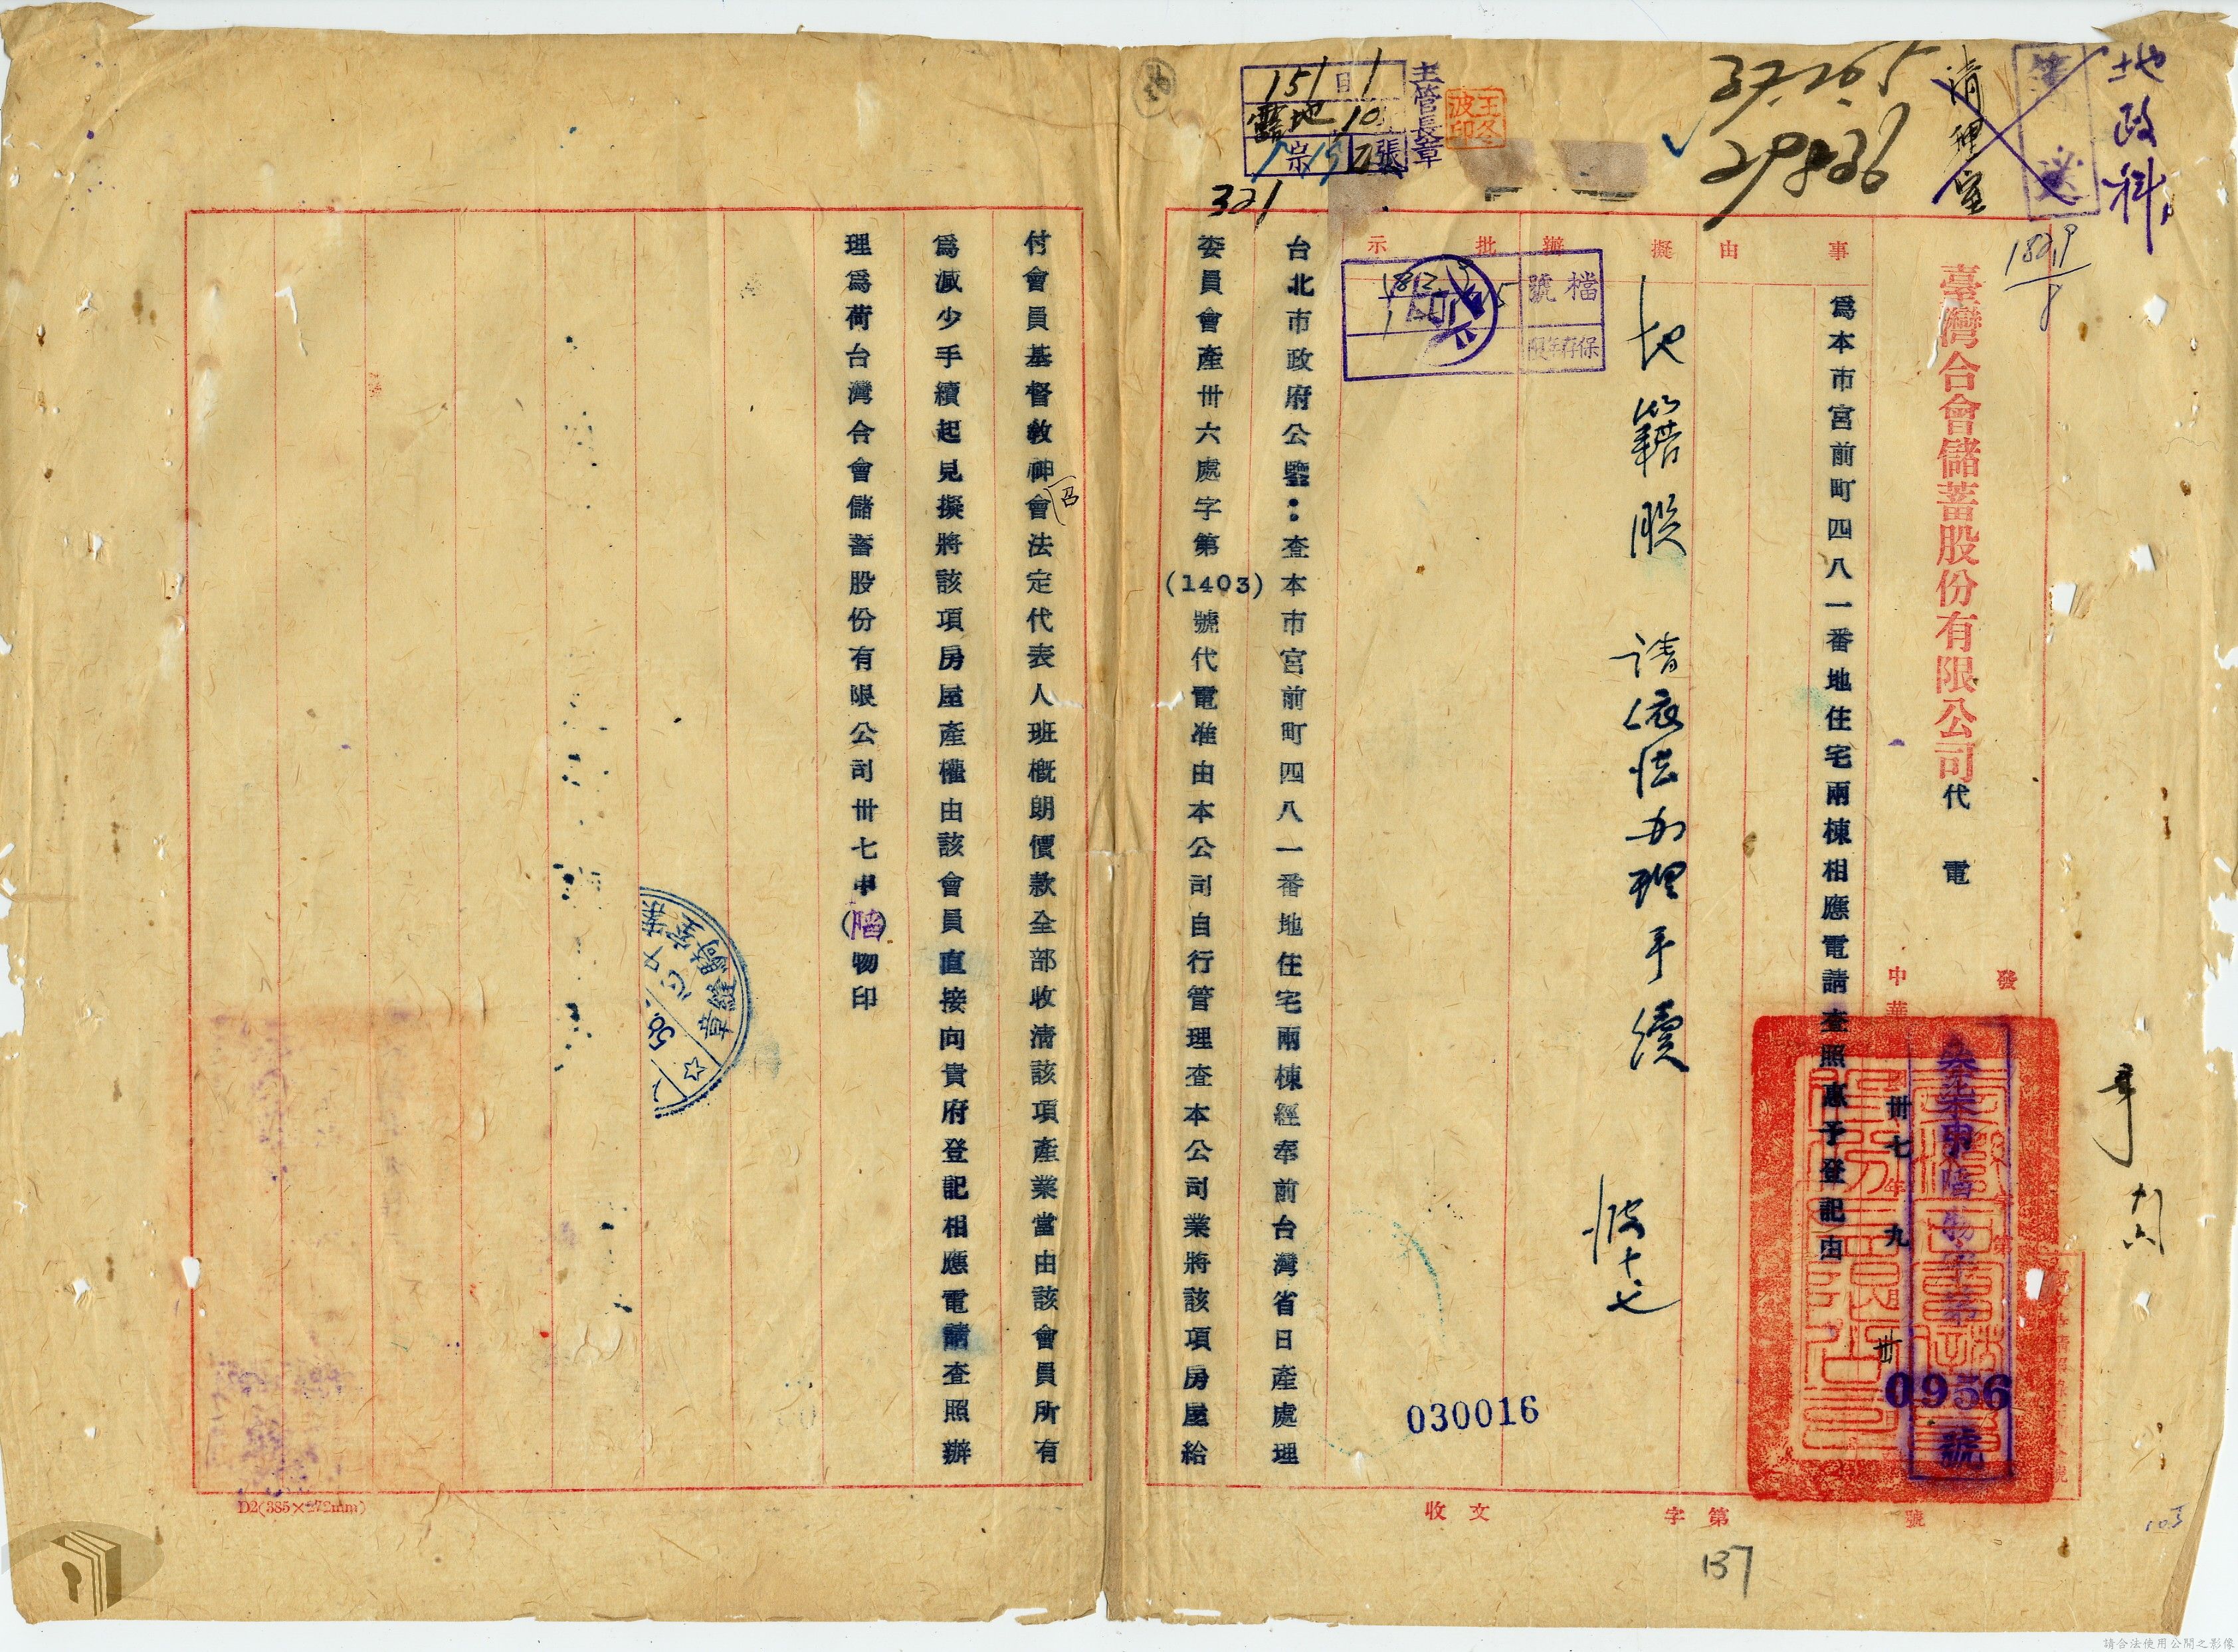 地政科
清理室
37.10.5
29836
主管長章
王冬波印
321
臺灣合會儲蓄股份有限公司代電
事由
擬辦
批示
檔號
保存年限
為本市宮前町四八一番地住宅兩棟相應電請查照惠予登記由
中華
卅七年九月卅
發
叁柒申陷物字第0956號
地籍股 請依法办理手續
台北市政府公鑒：查本市宮前町四八一番地住宅兩棟經奉前台灣省日產處理
委員會產卅六處字第(1403)號代電准由本公司自行管理查本公司業將該項房屋給
付會員基督教神召會法定代表人班概朗價款全部收清該項產業當由該會員所有
為減少手續起見擬將該項房屋產權由該會員直接向貴府登記相應電請查照辦
理為荷台灣合會儲蓄股份有限公司卅七申(陷)物印
030016
收文
字第
號
137
103
D2(385×272mm)
請合法使用公開之影像